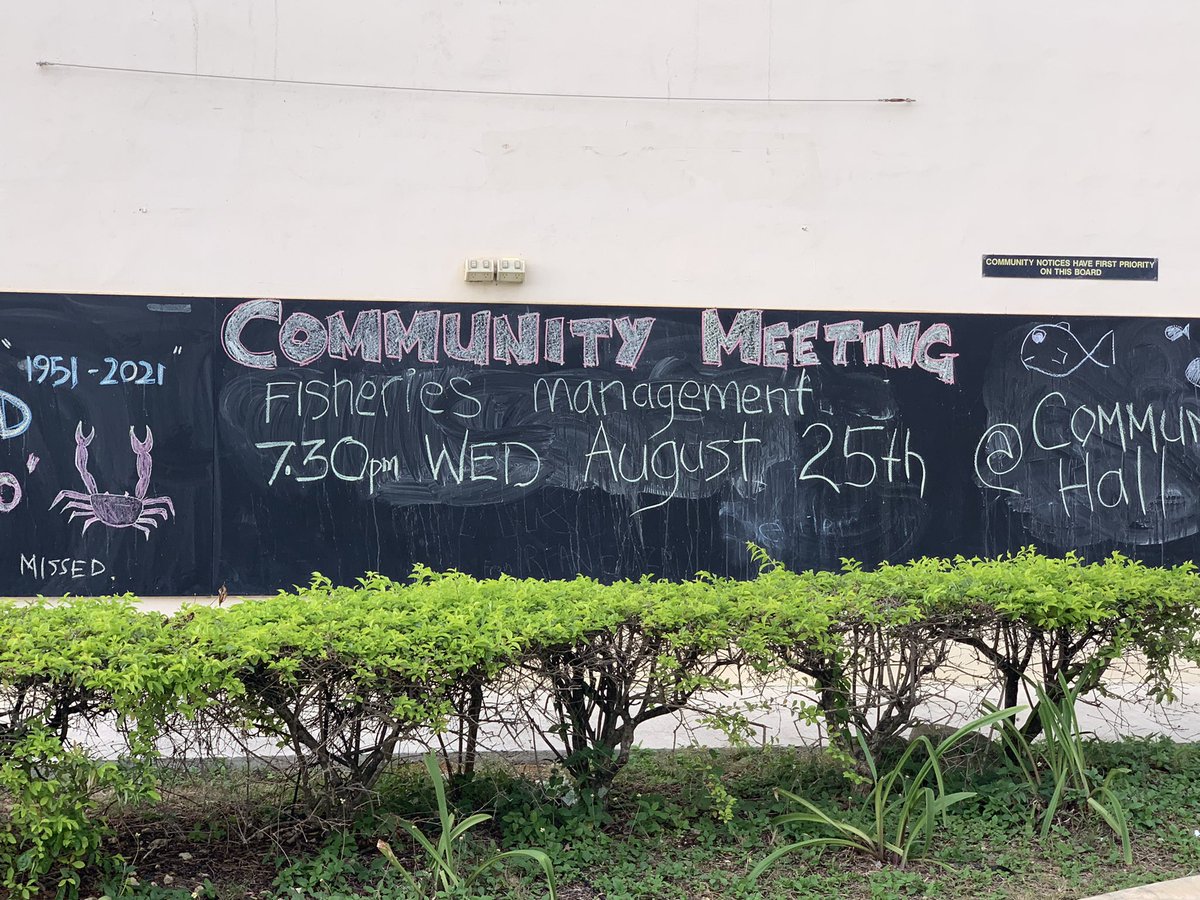 COMMUNITY NOTICES HAVE FIRST PRIORITY
ON THIS BOARD
"1951-2021"
MISSED.
COMMUNITY MEETING
FISHERIES management
7.30pm WED August 25th
@ COMMUN
Hall